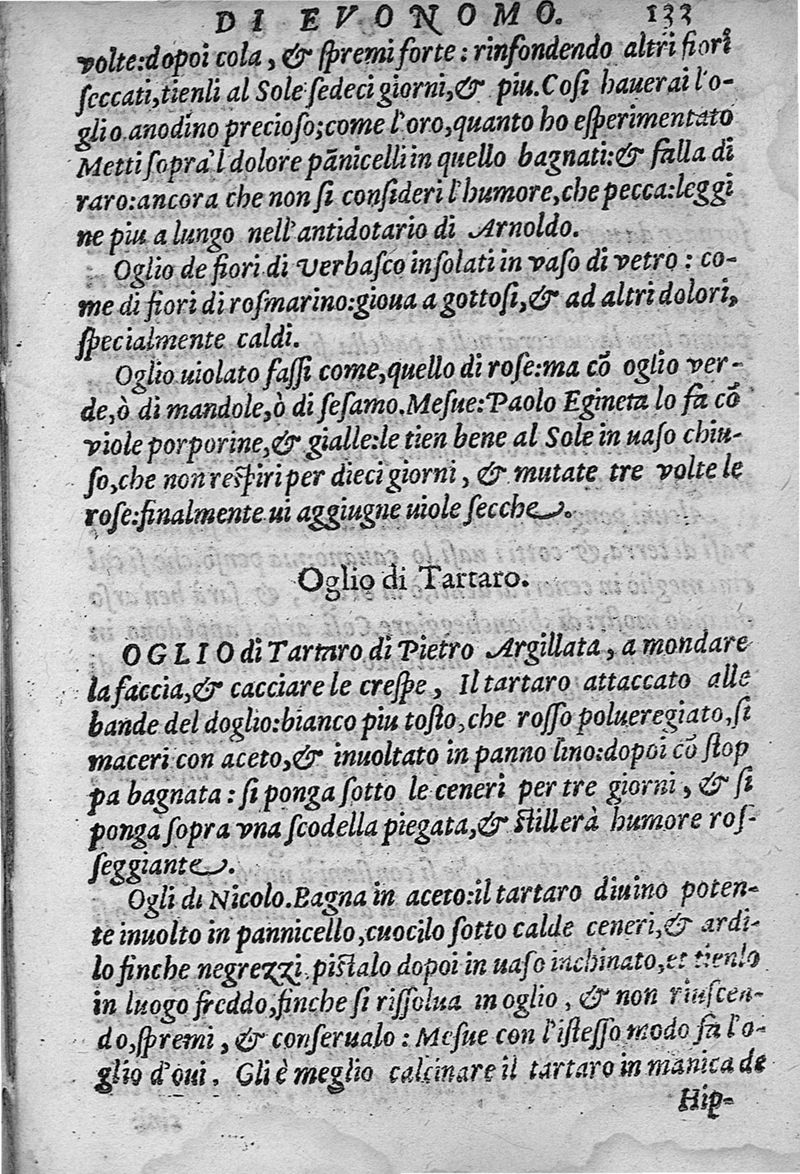 DI EVONOMO. 133
volte:dopoi cola, & ſpremi forte: rinfondendo altri fiori
ſeccati,tienli al Sole ſedeci giorni,& piu.Coſi hauerai l'o-
glio anodino precioſo;come l'oro,quanto ho eſperimentato
Metti ſopra'l dolore pānicelli in quello bagnati:& falla di
raro:ancora che non ſi conſideri l'humore,che pecca:leggi
ne piu a lungo nell'antidotario di Arnoldo.
Oglio de fiori di Verbaſco inſolati in vaſo di vetro: co-
me di fiori di roſmarino:gioua a gottoſi,& ad altri dolori,
ſpecialmente caldi.
Oglio uiolato faſſi come,quello di roſe:ma cō oglio ver-
de,ò di mandole,ò di ſeſamo.Meſue:Paolo Egineta lo fa cō
viole porporine,& gialle:le tien bene al Sole in uaſo chiu-
ſo,che non reſpiri per dieci giorni, & mutate tre volte le
roſe:finalmente ui aggiugne uiole ſecche.
Oglio di Tartaro.
OGLIO di Tartaro di Pietro Argillata, a mondare
la faccia,& cacciare le creſpe, Il tartaro attaccato alle
bande del doglio:bianco piu toſto,che roſſo polueregiato,ſi
maceri con aceto,& inuoltato in panno lino:dopoi cō ſtop
pa bagnata: ſi ponga ſotto le ceneri per tre giorni, & ſi
ponga ſopra vna ſcodella piegata,& ſtillerà humore roſ-
ſeggiante.
Ogli di Nicolo.Bagna in aceto:il tartaro diuino poten-
te inuolto in pannicello,cuocilo ſotto calde ceneri,& ardi-
lo finche negrezzi.piſtalo dopoi in uaſo inchinato,et tienlo
in luogo freddo,finche ſi riſſolua in oglio, & non riuſcen-
do,ſpremi, & conſerualo: Meſue con l'iſteſſo modo fa l'o-
glio d'oui. Gli è meglio calcinare il tartaro in manica de
Hip-